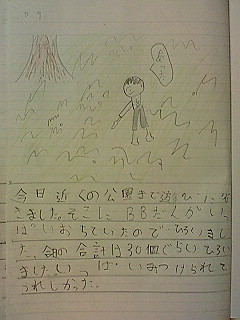 今日近くの公園まで遊びに行
きました。そこに、BBだんがいっ
ぱいおちていたのでひろいまし
た。合計は30個ぐらいひろい
ました。いっぱいみつけられて
うれしかった。